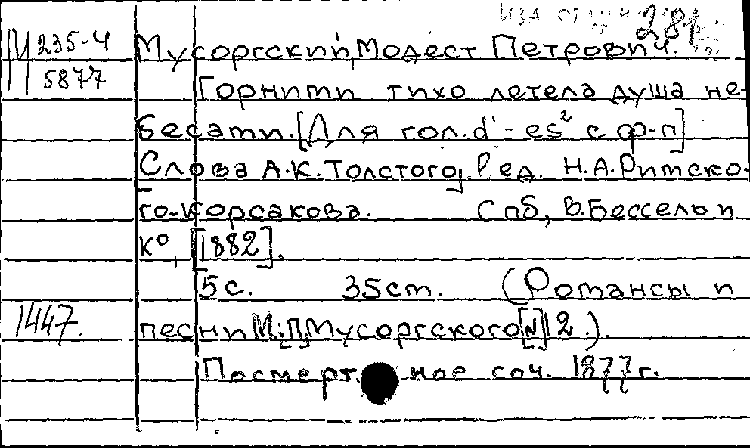 281
М 235-4 Мусоргский, Модест Петрович.
5877
Горними тихо летела душа не-
бесами. [Для гол. d' - es² с ф-п]
Слова А.К. Толстого. Ред. Н.А. Римско-
го-Корсакова. Спб, В. Бессель и
К°, [1882].
5 с. 35 см. (Романсы и
1447. песни М.П. Мусоргского [№] 12.).
Посмертное соч. 1877 г.